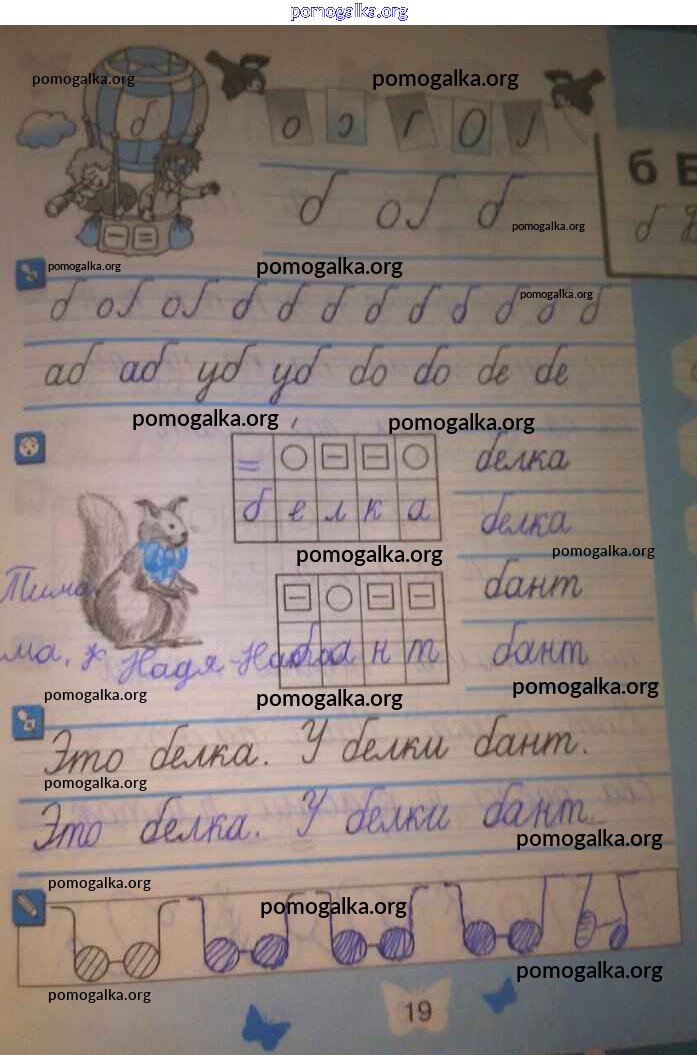 pomogalka.org
pomogalka.org pomogalka.org
б
о с г О
б Б
б об б
б
pomogalka.org
pomogalka.org pomogalka.org
pomogalka.org
б об об б б б б б б б б б
аб аб уб уб бо бо бе бе
pomogalka.org pomogalka.org
=
белка
б е л к а
белка
pomogalka.org pomogalka.org
Тима
бант
ма, к Надя-На
б а н т
бант
pomogalka.org pomogalka.org pomogalka.org
Это белка. У белки бант.
pomogalka.org
Это белка. У белки бант.
pomogalka.org
pomogalka.org
pomogalka.org
pomogalka.org
pomogalka.org
19